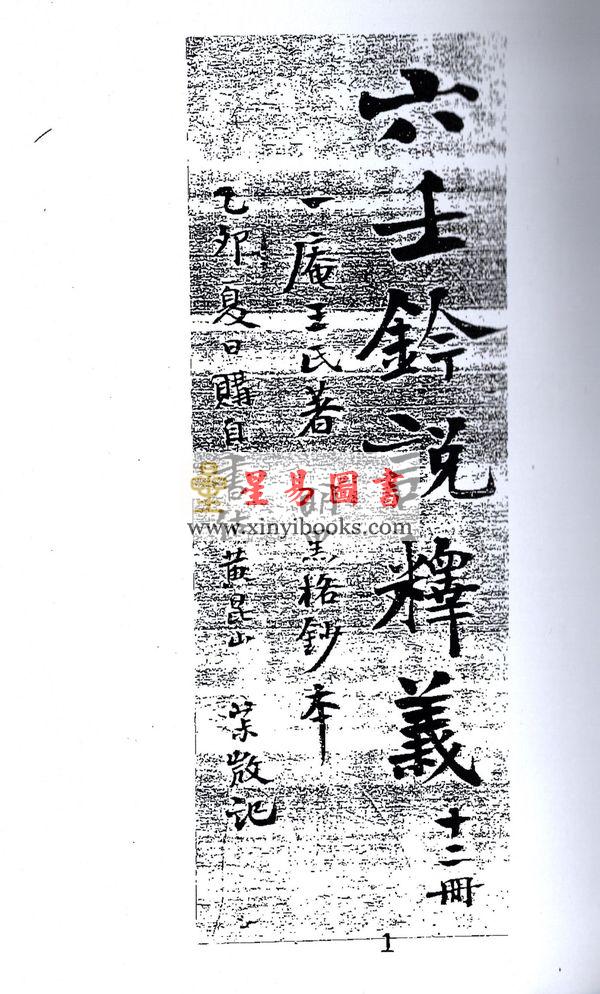 六壬鈐説釋義 十二冊
一庵王氏著 明黑格鈔本
乙卯夏日購自 黄昆山 記
星易圖書
www.xinyibooks.com
1